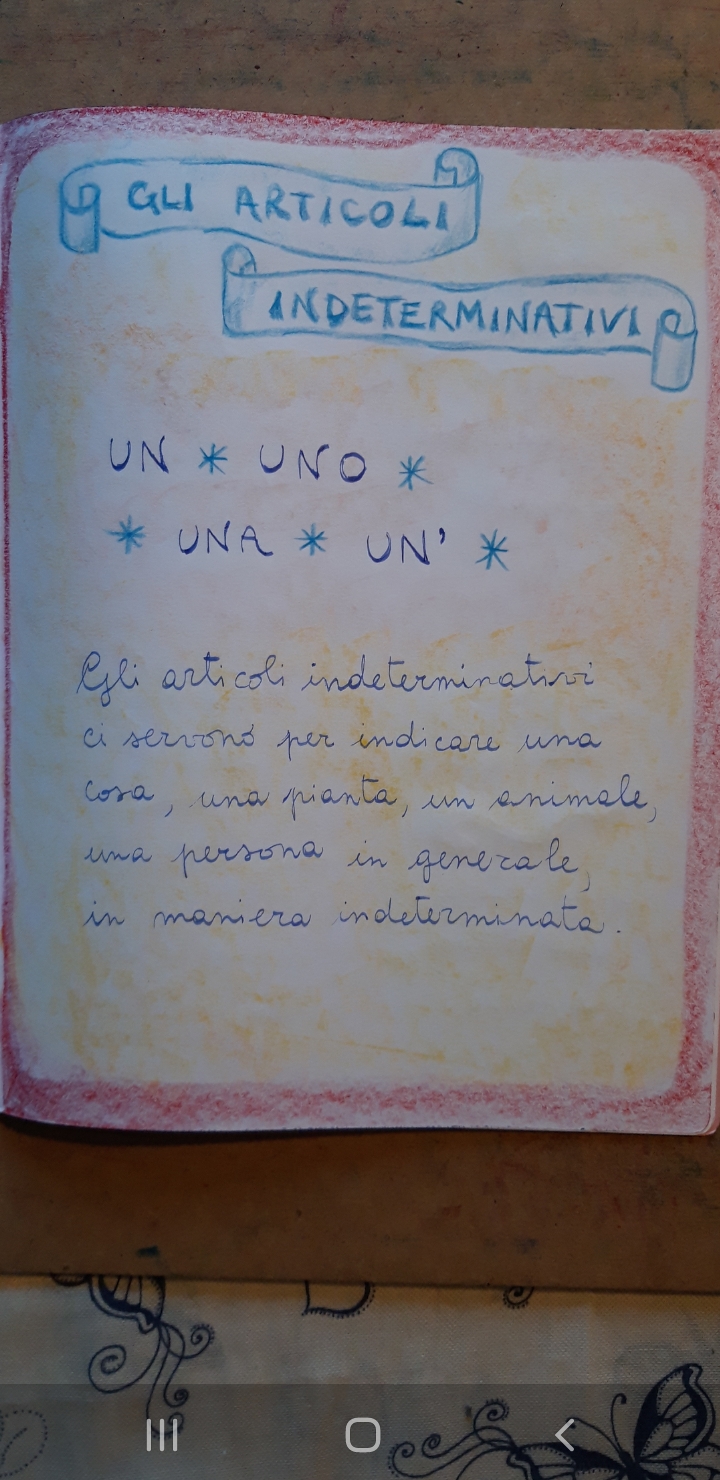 GLI ARTICOLI
INDETERMINATIVI
UN * UNO *
* UNA * UN' *
Gli articoli indeterminativi
ci servono per indicare una
cosa, una pianta, un animale,
una persona in generale,
in maniera indeterminata.